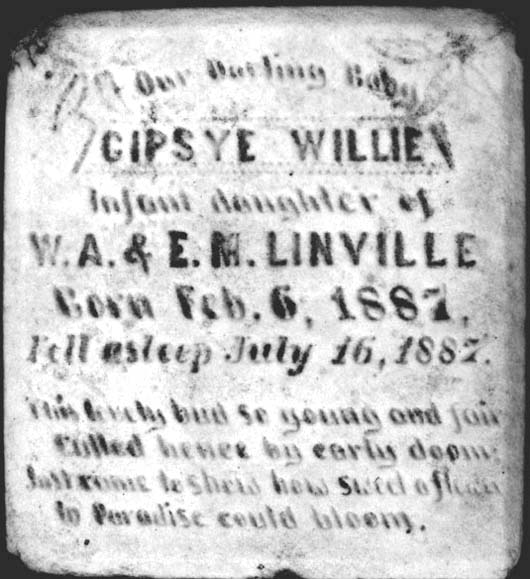 Our Darling Baby
GIPSYE WILLIE
Infant daughter of
W. A. & E. M. LINVILLE
Born Feb. 6, 1887,
Fell asleep July 16, 1887.
This lovely bud so young and fair
Called hence by early doom;
Just come to show how sweet a flower
In Paradise could bloom.